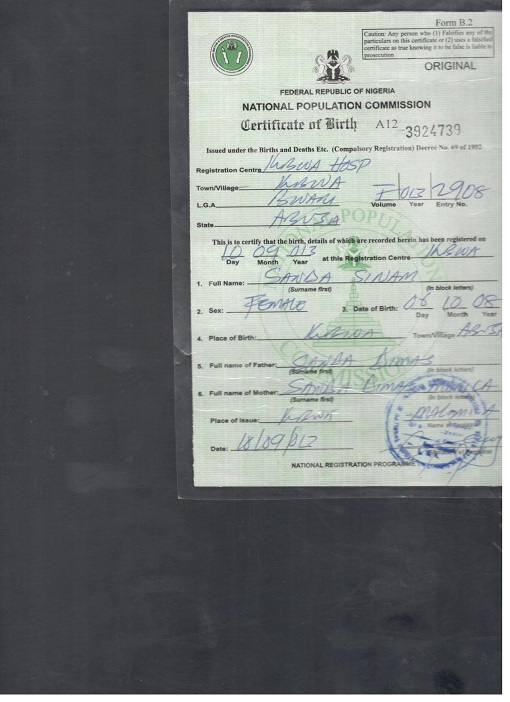 Form B.2
Caution: Any person who (1) Falsifies any of the
particulars on this certificate or (2) uses a falsified
certificate as true knowing it to be false is liable to
prosecution
ORIGINAL
FEDERAL REPUBLIC OF NIGERIA
NATIONAL POPULATION COMMISSION
Certificate of Birth A12 3924739
Issued under the Births and Deaths Etc. (Compulsory Registration) Decree No. 69 of 1992
Registration Centre KUBWA HOSP
Town/Village KUBWA
L.G.A BWARI F 013 2908
Volume Year Entry No.
State ABUJA
This is to certify that the birth, details of which are recorded herein has been registered on
10 09 013 at this Registration Centre KUBWA
Day Month Year
1. Full Name: SANDA SINAM
(Surname first) (In block letters)
2. Sex: FEMALE 3. Date of Birth: 06 10 08
Day Month Year
4. Place of Birth: KUBWA Town/Village ABUJA
5. Full name of Father: SANDA DIMAS
(Surname first) (In block letters)
6. Full name of Mother: SANDA DIMAS
(Surname first) (In block letters)
Place of Issue: KUBWA
Name of
Date: 10/09/013
NATIONAL REGISTRATION PROGRAMME